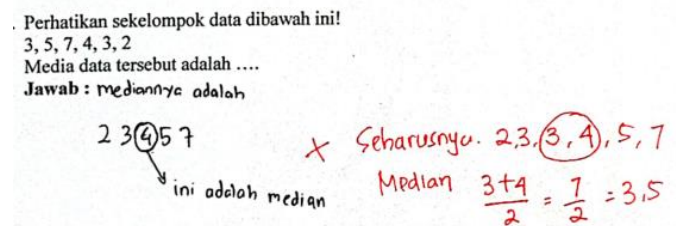 . Perhatikan sekelompok data dibawah ini!
3, 5, 7, 4, 3, 2
Media data tersebut adalah ....
Jawab : mediannya adalah
2 3 4 5 7
ini adalah median
× Seharusnya. 2,3,3,4,5,7
Median 3+4/2 = 7/2 = 3,5